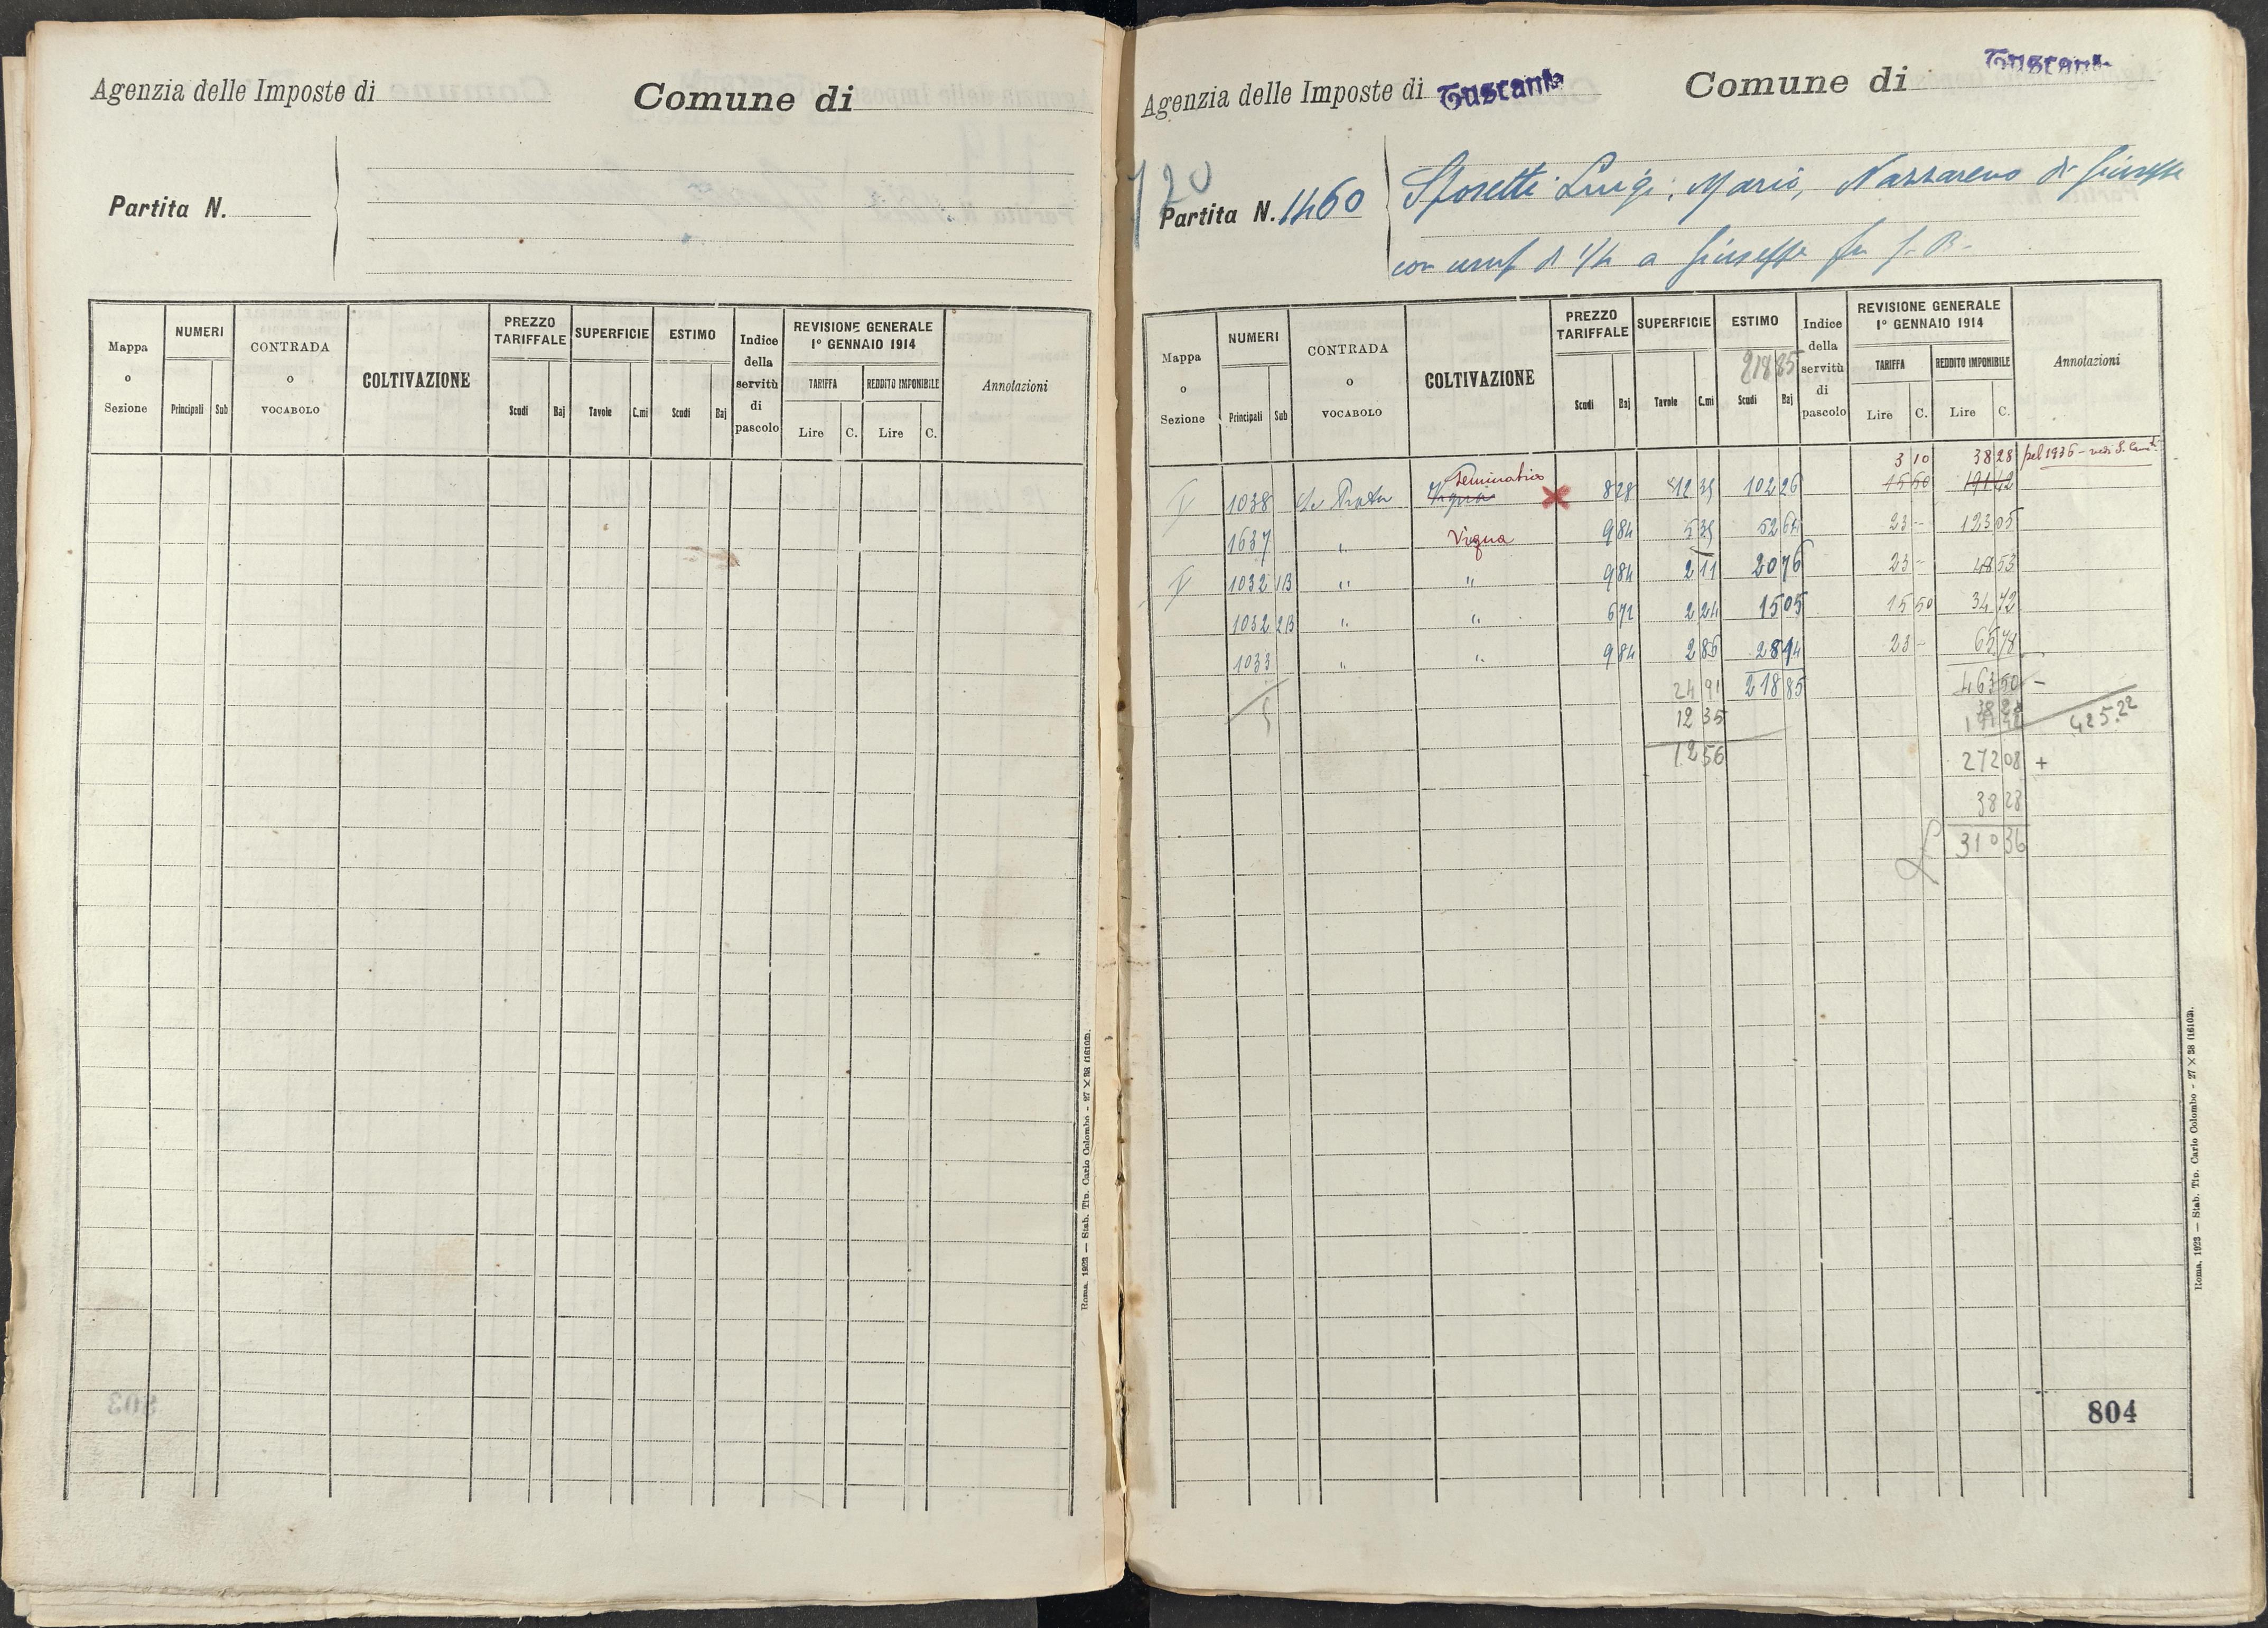 Agenzia delle Imposte di
Comune di
Partita N.
Mappa o Sezione
NUMERI
Principali Sub
CONTRADA o VOCABOLO
COLTIVAZIONE
PREZZO TARIFFALE
Scudi Baj
SUPERFICIE
Tavole C.mi
ESTIMO
Scudi Baj
Indice della servitù di pascolo
REVISIONE GENERALE 1º GENNAIO 1914
TARIFFA
Lire C.
REDDITO IMPONIBILE
Lire C.
Annotazioni
Roma, 1923 — Stab. Tip. Carlo Colombo - 27 × 38 (16103).
Agenzia delle Imposte di Tuscania
Comune di Tuscania
720
Partita N. 1460
Sposetti Luigi, Mario, Nazzareno di Giuseppe
con usuf di 1/4 a Giuseppe fu G. B.
Mappa o Sezione
NUMERI
Principali Sub
CONTRADA o VOCABOLO
COLTIVAZIONE
PREZZO TARIFFALE
Scudi Baj
SUPERFICIE
Tavole C.mi
ESTIMO
21885
Scudi Baj
Indice della servitù di pascolo
REVISIONE GENERALE 1º GENNAIO 1914
TARIFFA
Lire C.
REDDITO IMPONIBILE
Lire C.
Annotazioni
3 10 38 28 pel 1936 - vedi
Seminativo
V 1038 Vigna 8 28 12 35 102 26 15 50 191 42
1637 " Vigna 9 84 5 35 52 64 23 - 123 05
V 1032 1B " " 9 84 2 11 20 76 23 - 48 53
1032 2B " " 6 72 2 24 15 05 15 50 34 72
1033 " " 9 84 2 86 28 14 23 - 65 78
5 24 91 218 85 463 50 -
12 35 38 28 425.22
191 42
12 56 272 08 +
38 28
310 36
804
Roma, 1923 — Stab. Tip. Carlo Colombo - 27 × 38 (16103).